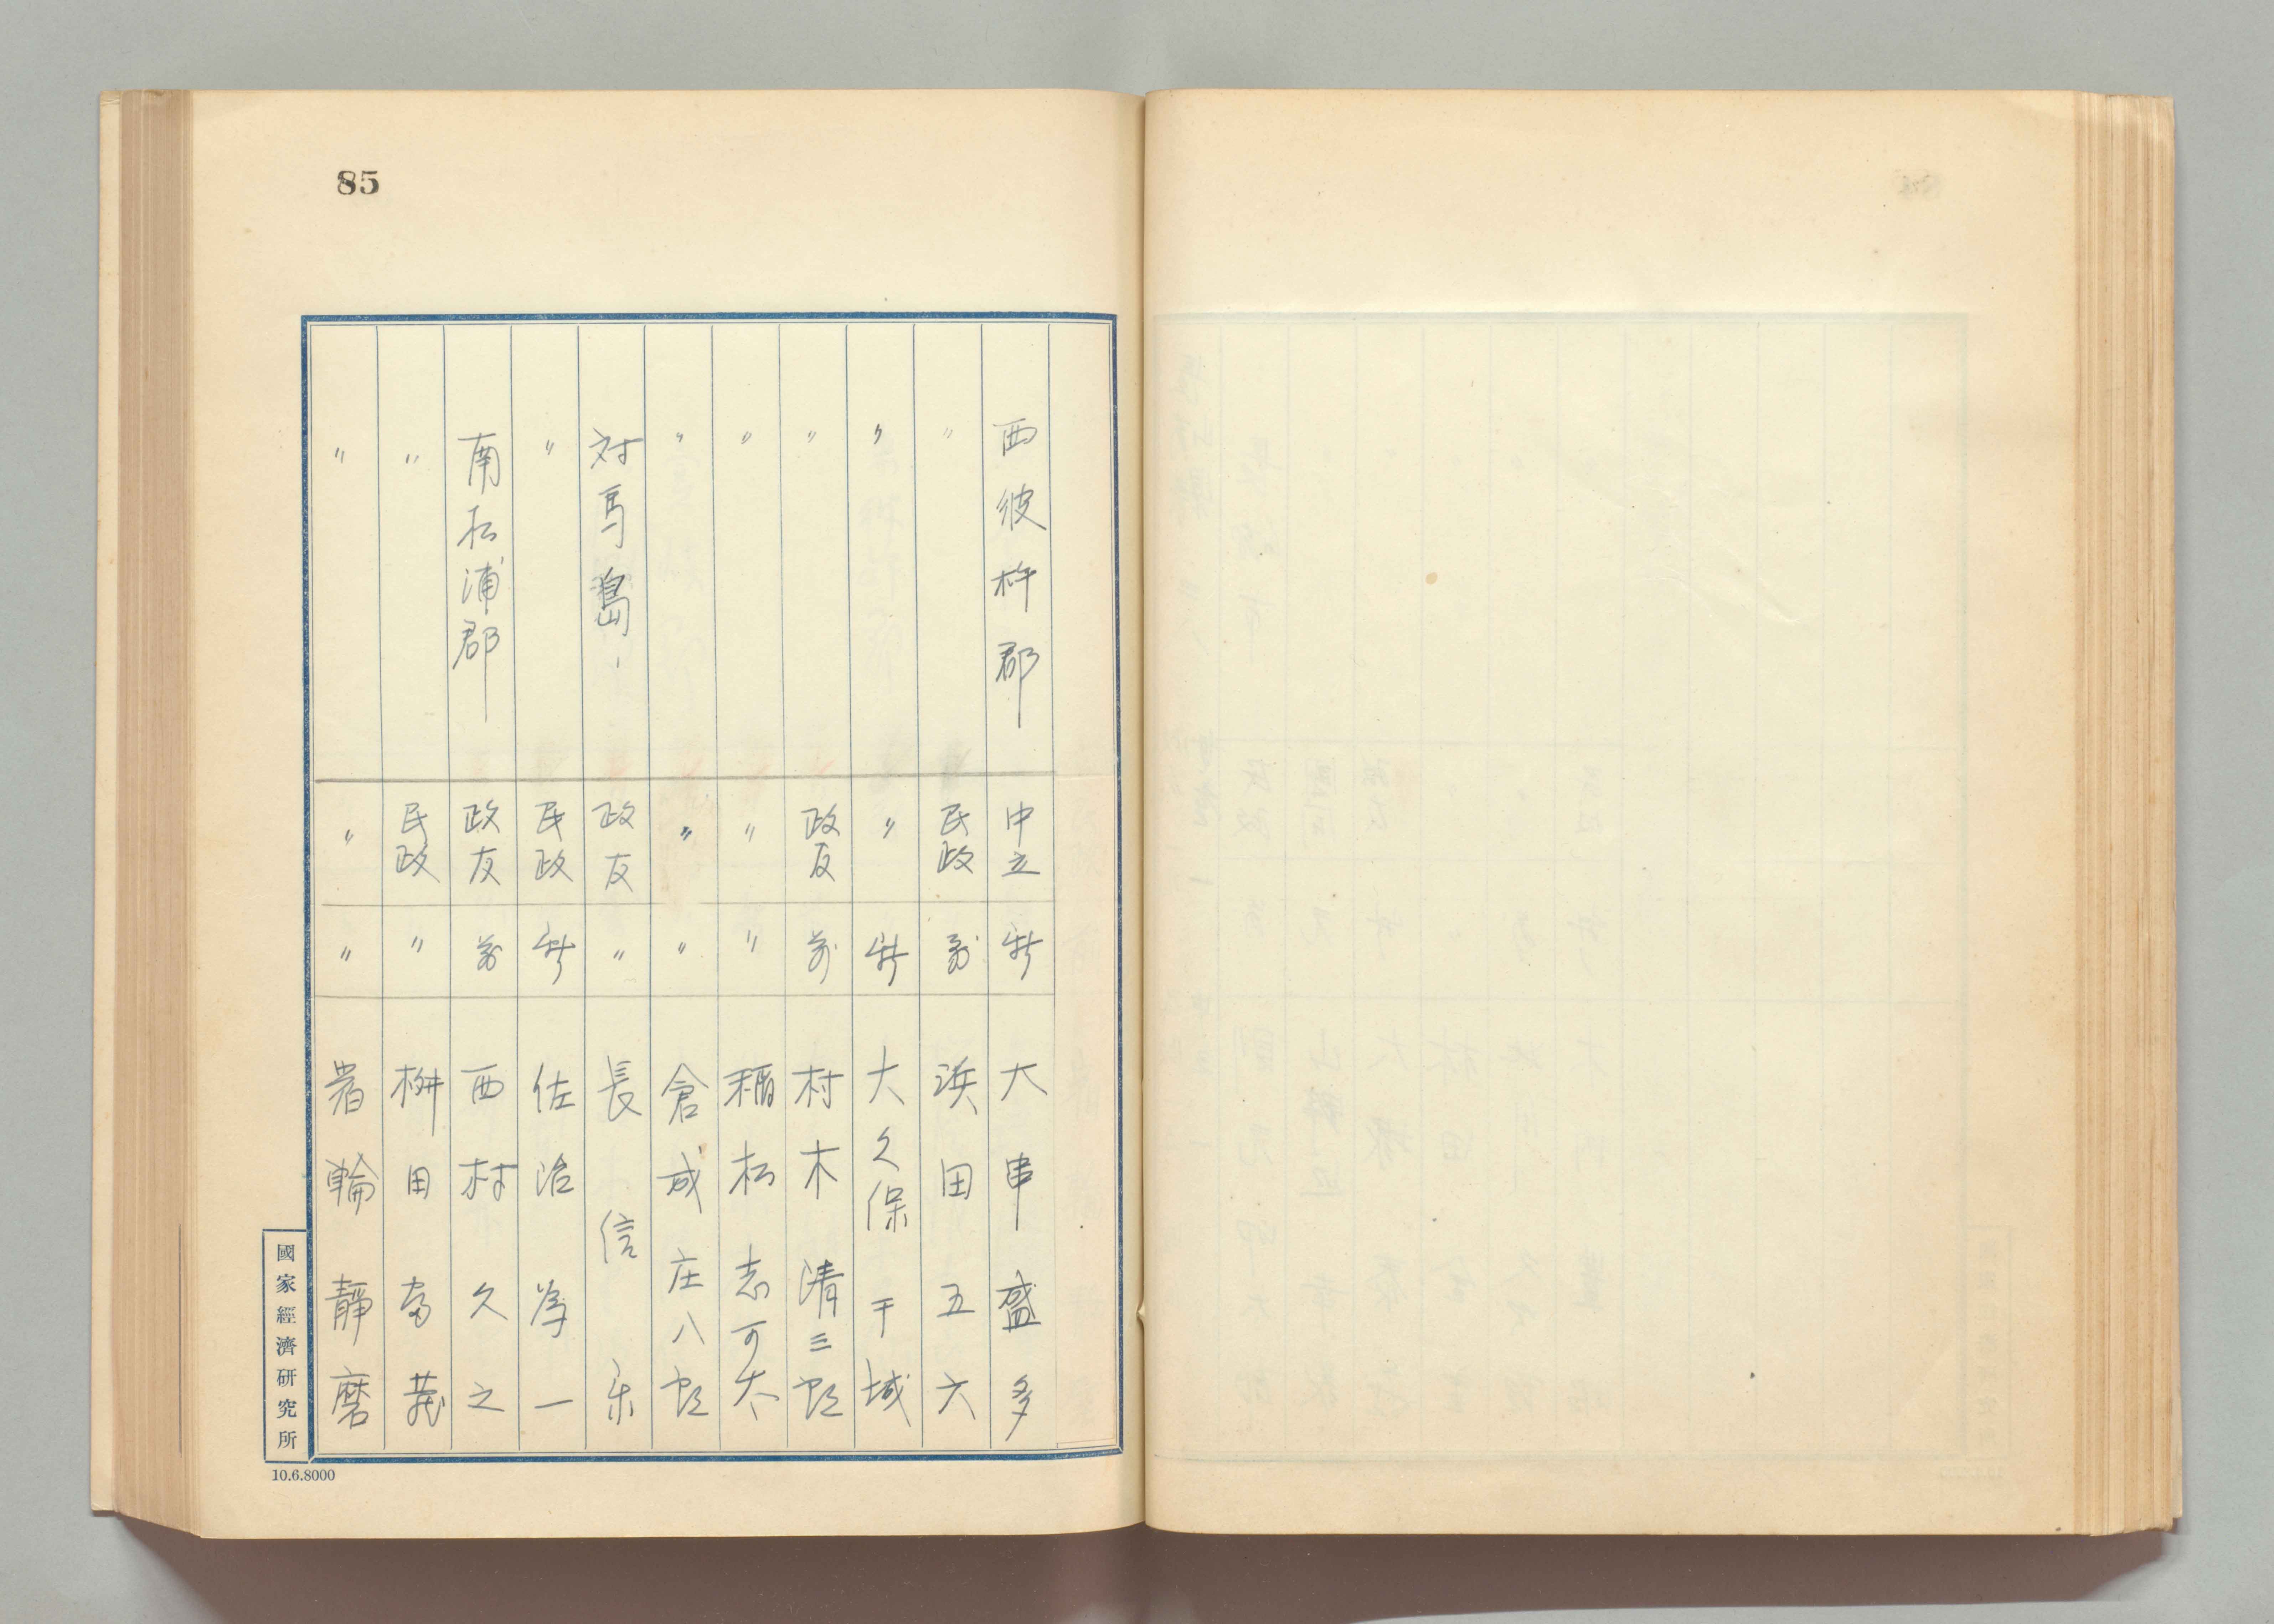 85
西彼杵郡 中立 新 大串盛多
〃 民政 前 浜田五六
〃 〃 新 大久保千城
〃 政友 前 村木清三郎
〃 〃 〃 稲松志可太
〃 〃 〃 倉成庄八郎
対馬島 政友 〃 長信乐
〃 民政 新 佐治為一
南松浦郡 政友 前 西村久之
〃 民政 〃 桝田富茂
〃 〃 〃 岩輪靜磨
國家經濟研究所
10.6.8000